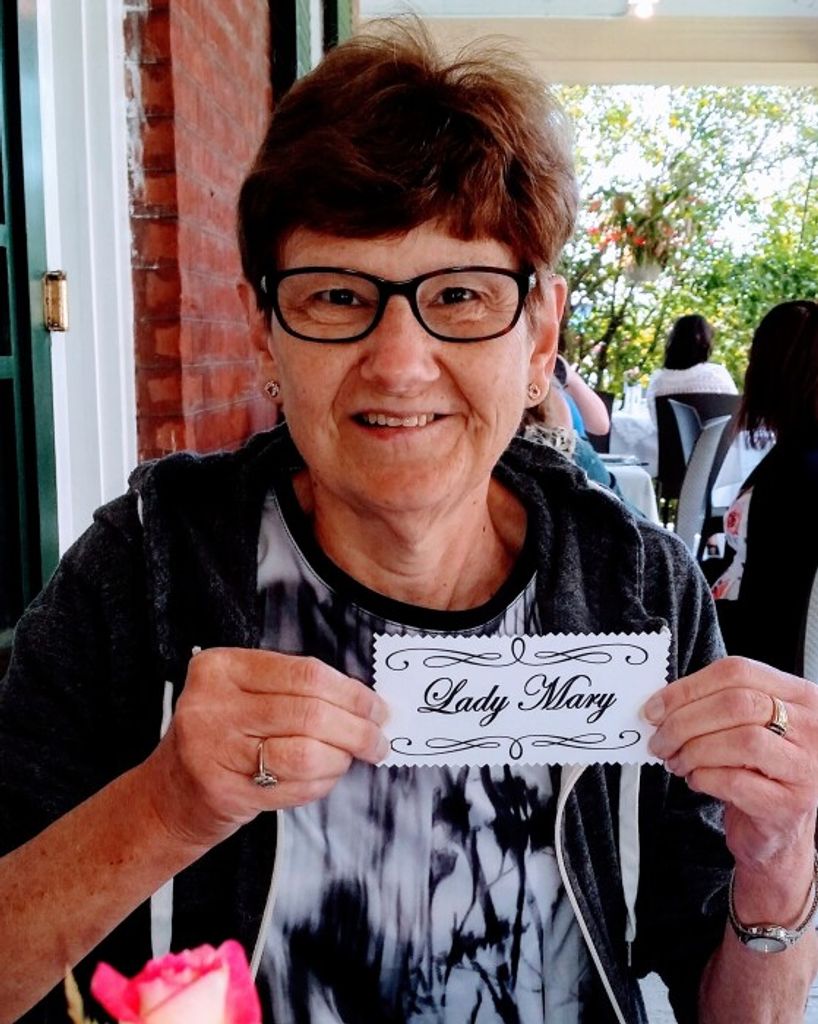 Lady Mary